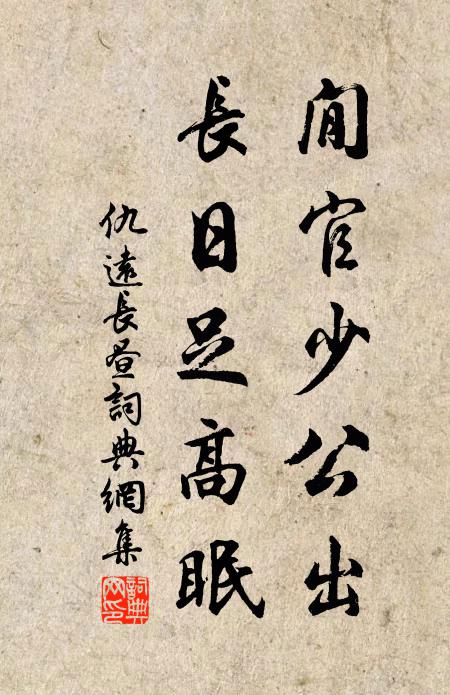 閒官少公出
長日足高眠
仇遠長晝詞典網集
詞典網印